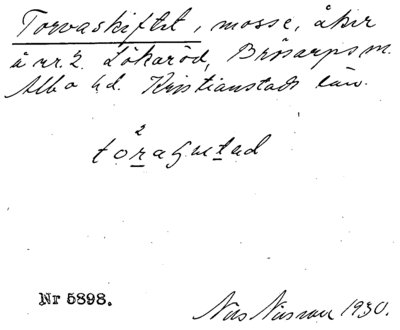 Torvaskiftet, mosse, åker
å nr. 2. Lökaröd, Brösarps sn.
Albo hd. Kristianstads län.
2
Nr 5898.
Nils Nilsson 1930.